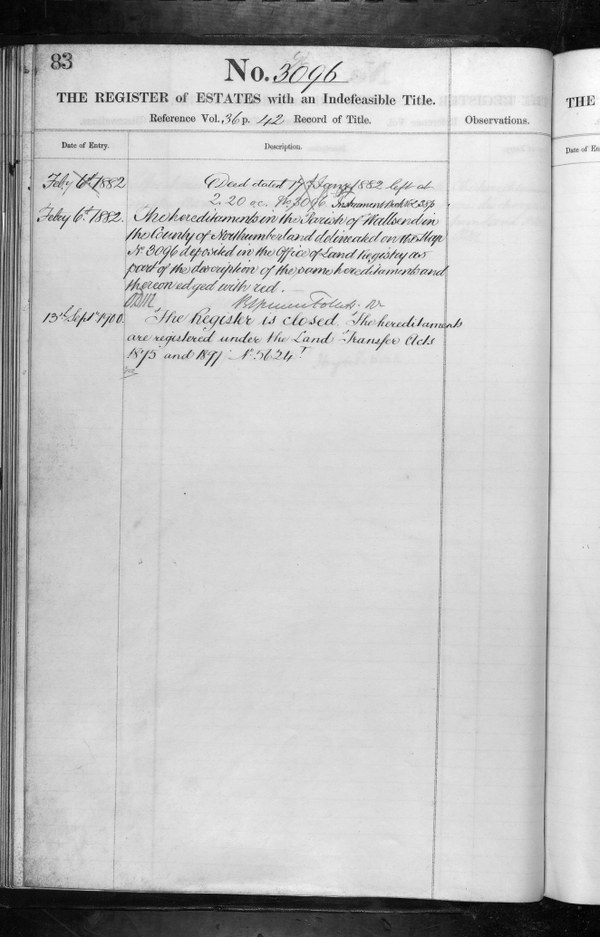 83
No. 3096
THE REGISTER of ESTATES with an Indefeasible Title.
Reference Vol. 36 p. 42 Record of Title.
Observations.
Date of Entry.
Description.
Feby 6th 1882
Deed dated 17 Jany 1882 left at
2. 20 No 3096 Instrument Book
Feby 6th 1882.
The hereditaments in the Parish of Wallsend in
the County of Northumberland delineated on the Map
No 3096 deposited in the Office of Land Registry as
part of the description of the same hereditaments and
thereon edged with red.
13th Sept 1900.
The Register is closed. The hereditaments
are registered under the Land Transfer Acts
1875 and 1897 No 5624
THE
Date of En